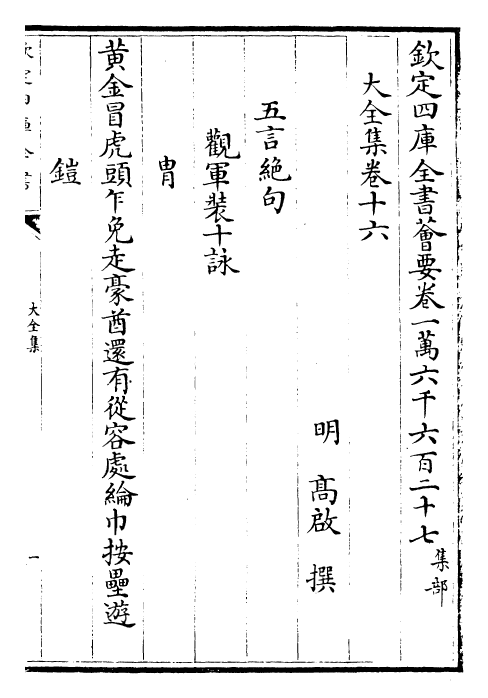 欽定四庫全書薈要卷一萬六千六百二十七
集部
大全集卷十六
明 高啟 撰
五言絶句
觀軍裝十詠
胄
黄金冒虎頭乍免走豪酋還有從容處綸巾按壘遊
鎧
欽定四庫全書
大全集
一